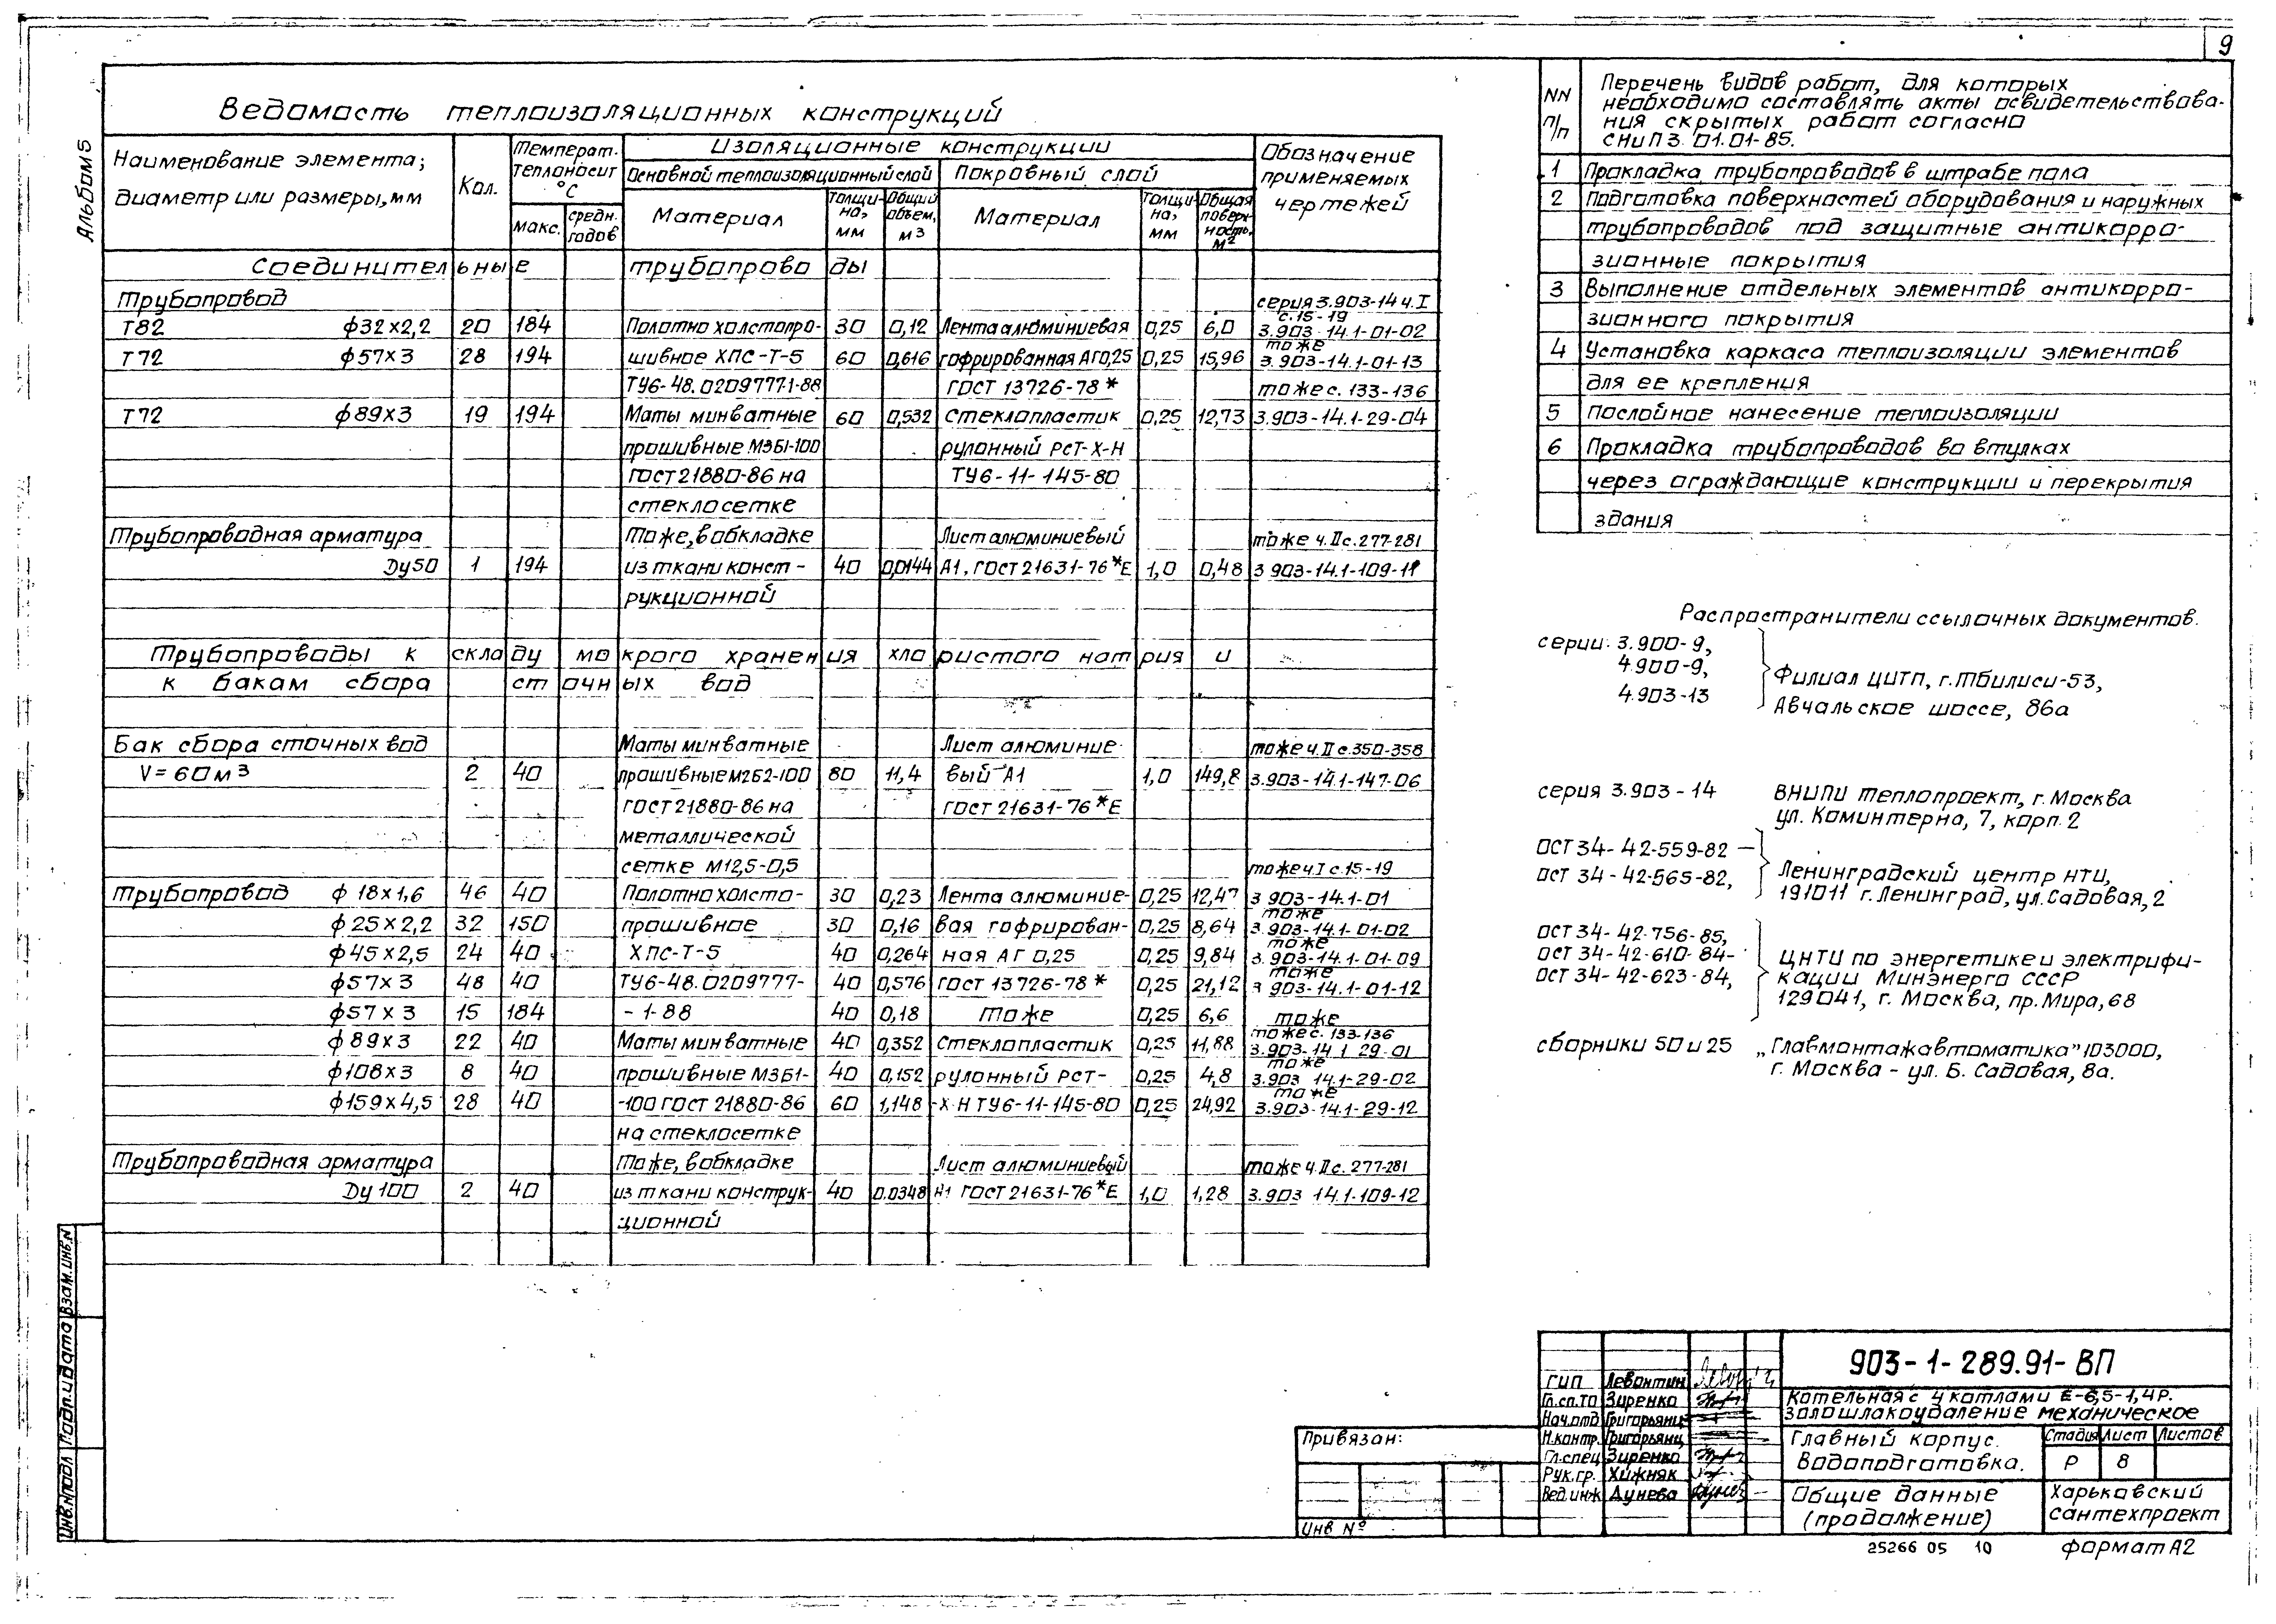 9
Альбом 5
Ведомость теплоизоляционных конструкций
Наименование элемента; диаметр или размеры, мм
Кол.
Температ. теплоносит °С
макс.
средн. годов
Изоляционные конструкции
Основной теплоизоляционный слой
Покровный слой
Материал
Толщина, мм
Общий объем, м3
Материал
Толщина, мм
Общая поверхность, м2
Обозначение применяемых чертежей
Соединительные трубопроводы
Трубопровод серия 3.903-14 ч. I с. 15-19
Т82 ф32×2,2 20 184 Полотно холстопро- 30 0,12 Лента алюминиевая 0,25 6,0 3.903-14.1-01-02
Т72 ф57×3 28 194 шивное ХПС-Т-5 60 0,616 гофрированная АГ0,25 0,25 15,96 тоже 3.903-14.1-01-13
ТУ6-48.0209777.1-88 ГОСТ 13726-78* тоже с. 133-136
Т72 ф89×3 19 194 Маты минватные 60 0,532 Стеклопластик 0,25 12,73 3.903-14.1-29-04
прошивные М3Б1-100 рулонный РСТ-Х-Н
ГОСТ 21880-86 на ТУ6-11-145-80
стеклосетке
Трубопроводная арматура Тоже, в обкладке Лист алюминиевый тоже ч. II с. 277-281
Ду50 1 194 из ткани конст- 40 0,0144 А1, ГОСТ 21631-76*Е 1,0 0,48 3.903-14.1-109-11
рукционной
Трубопроводы к складу мокрого хранения хлористого натрия и
к бакам сбора сточных вод
Бак сбора сточных вод Маты минватные Лист алюмине- тоже ч. II с. 350-358
V=60м3 2 40 прошивные М2Б2-100 80 11,4 вый А1 1,0 149,8 3.903-14.1-147-06
ГОСТ 21880-86 на ГОСТ 21631-76*Е
металлической
сетке М12,5-0,5 тоже ч I с. 15-19
Трубопровод ф 18×1,6 46 40 Полотно холсто- 30 0,23 Лента алюминие- 0,25 12,47 3.903-14.1-01
ф25×2,2 32 150 прошивное 30 0,16 вая гофрирован- 0,25 8,64 тоже 3.903-14.1-01-02
ф45×2,5 24 40 ХПС-Т-5 40 0,264 ная АГ 0,25 0,25 9,84 тоже 3.903-14.1-01-09
ф57×3 48 40 ТУ6-48.0209777- 40 0,576 ГОСТ 13726-78* 0,25 21,12 тоже 3.903-14.1-01-12
ф57×3 15 184 -1-88 40 0,18 тоже 0,25 6,6 тоже
ф89×3 22 40 Маты минватные 40 0,352 Стеклопластик 0,25 11,88 тоже с. 133-136 3.903-14.1-29-01
ф108×3 8 40 прошивные М3Б1- 40 0,152 рулонный РСТ- 0,25 4,8 тоже 3.903-14.1-29-02
ф159×4,5 28 40 -100 ГОСТ 21880-86 60 1,148 -Х-Н ТУ6-11-145-80 0,25 24,92 тоже 3.903-14.1-29-12
на стеклосетке
Трубопроводная арматура Тоже, в обкладке Лист алюминиевый тоже ч. II с. 277-281
Ду 100 2 40 из ткани конструк- 40 0,0348 А1 ГОСТ 21631-76*Е 1,0 1,28 3.903-14.1-109-12
ционной
NN п/п
Перечень видов работ, для которых
необходимо составлять акты освидетельствова-
ния скрытых работ согласно
СНиП 3.01.01-85.
1 Прокладка трубопроводов в штрабе пола
2 Подготовка поверхностей оборудования и наружных
трубопроводов под защитные антикорро-
зионные покрытия
3 Выполнение отдельных элементов антикорро-
зионного покрытия
4 Установка каркаса теплоизоляции элементов
для ее крепления
5 Послойное нанесение теплоизоляции
6 Прокладка трубопроводов во втулках
через ограждающие конструкции и перекрытия
здания
Распространители ссылочных документов.
серии: 3.900-9,
4.900-9,
4.903-13
Филиал ЦИТП, г. Тбилиси-53,
Авчальское шоссе, 86а
серия 3.903-14 ВНИПИ теплопроект, г. Москва
ул. Коминтерна, 7, корп. 2
ОСТ 34-42-559-82
ОСТ 34-42-565-82,
Ленинградский центр НТИ,
191011 г. Ленинград, ул. Садовая, 2
ОСТ 34-42-756-85,
ОСТ 34-42-610-84-
ОСТ 34-42-623-84,
ЦНТИ по энергетике и электрифи-
кации Минэнерго СССР
129041, г. Москва, пр. Мира, 68
сборники 50 и 25 „Главмонтажавтоматика" 103000,
г. Москва - ул. Б. Садовая, 8а.
Привязан:
Инв №
ГИП Левантин
Гл.сп.ТО Зиренко
Нач.отд Григорьянц
Н.контр. Григорьянц
Гл.спец Зиренко
Рук.гр. Хижняк
Вед.инж Дунева
903-1-289.91-ВП
Котельная с 4 котлами Е-6,5-1,4Р.
Золошлакоудаление механическое
Главный корпус.
Водоподготовка.
Стадия Лист Листов
Р 8
Общие данные
(продолжение)
Харьковский
сантехпроект
25266 05 10
формат А2
Инв.№подл Подп. и дата Взам.инв.N